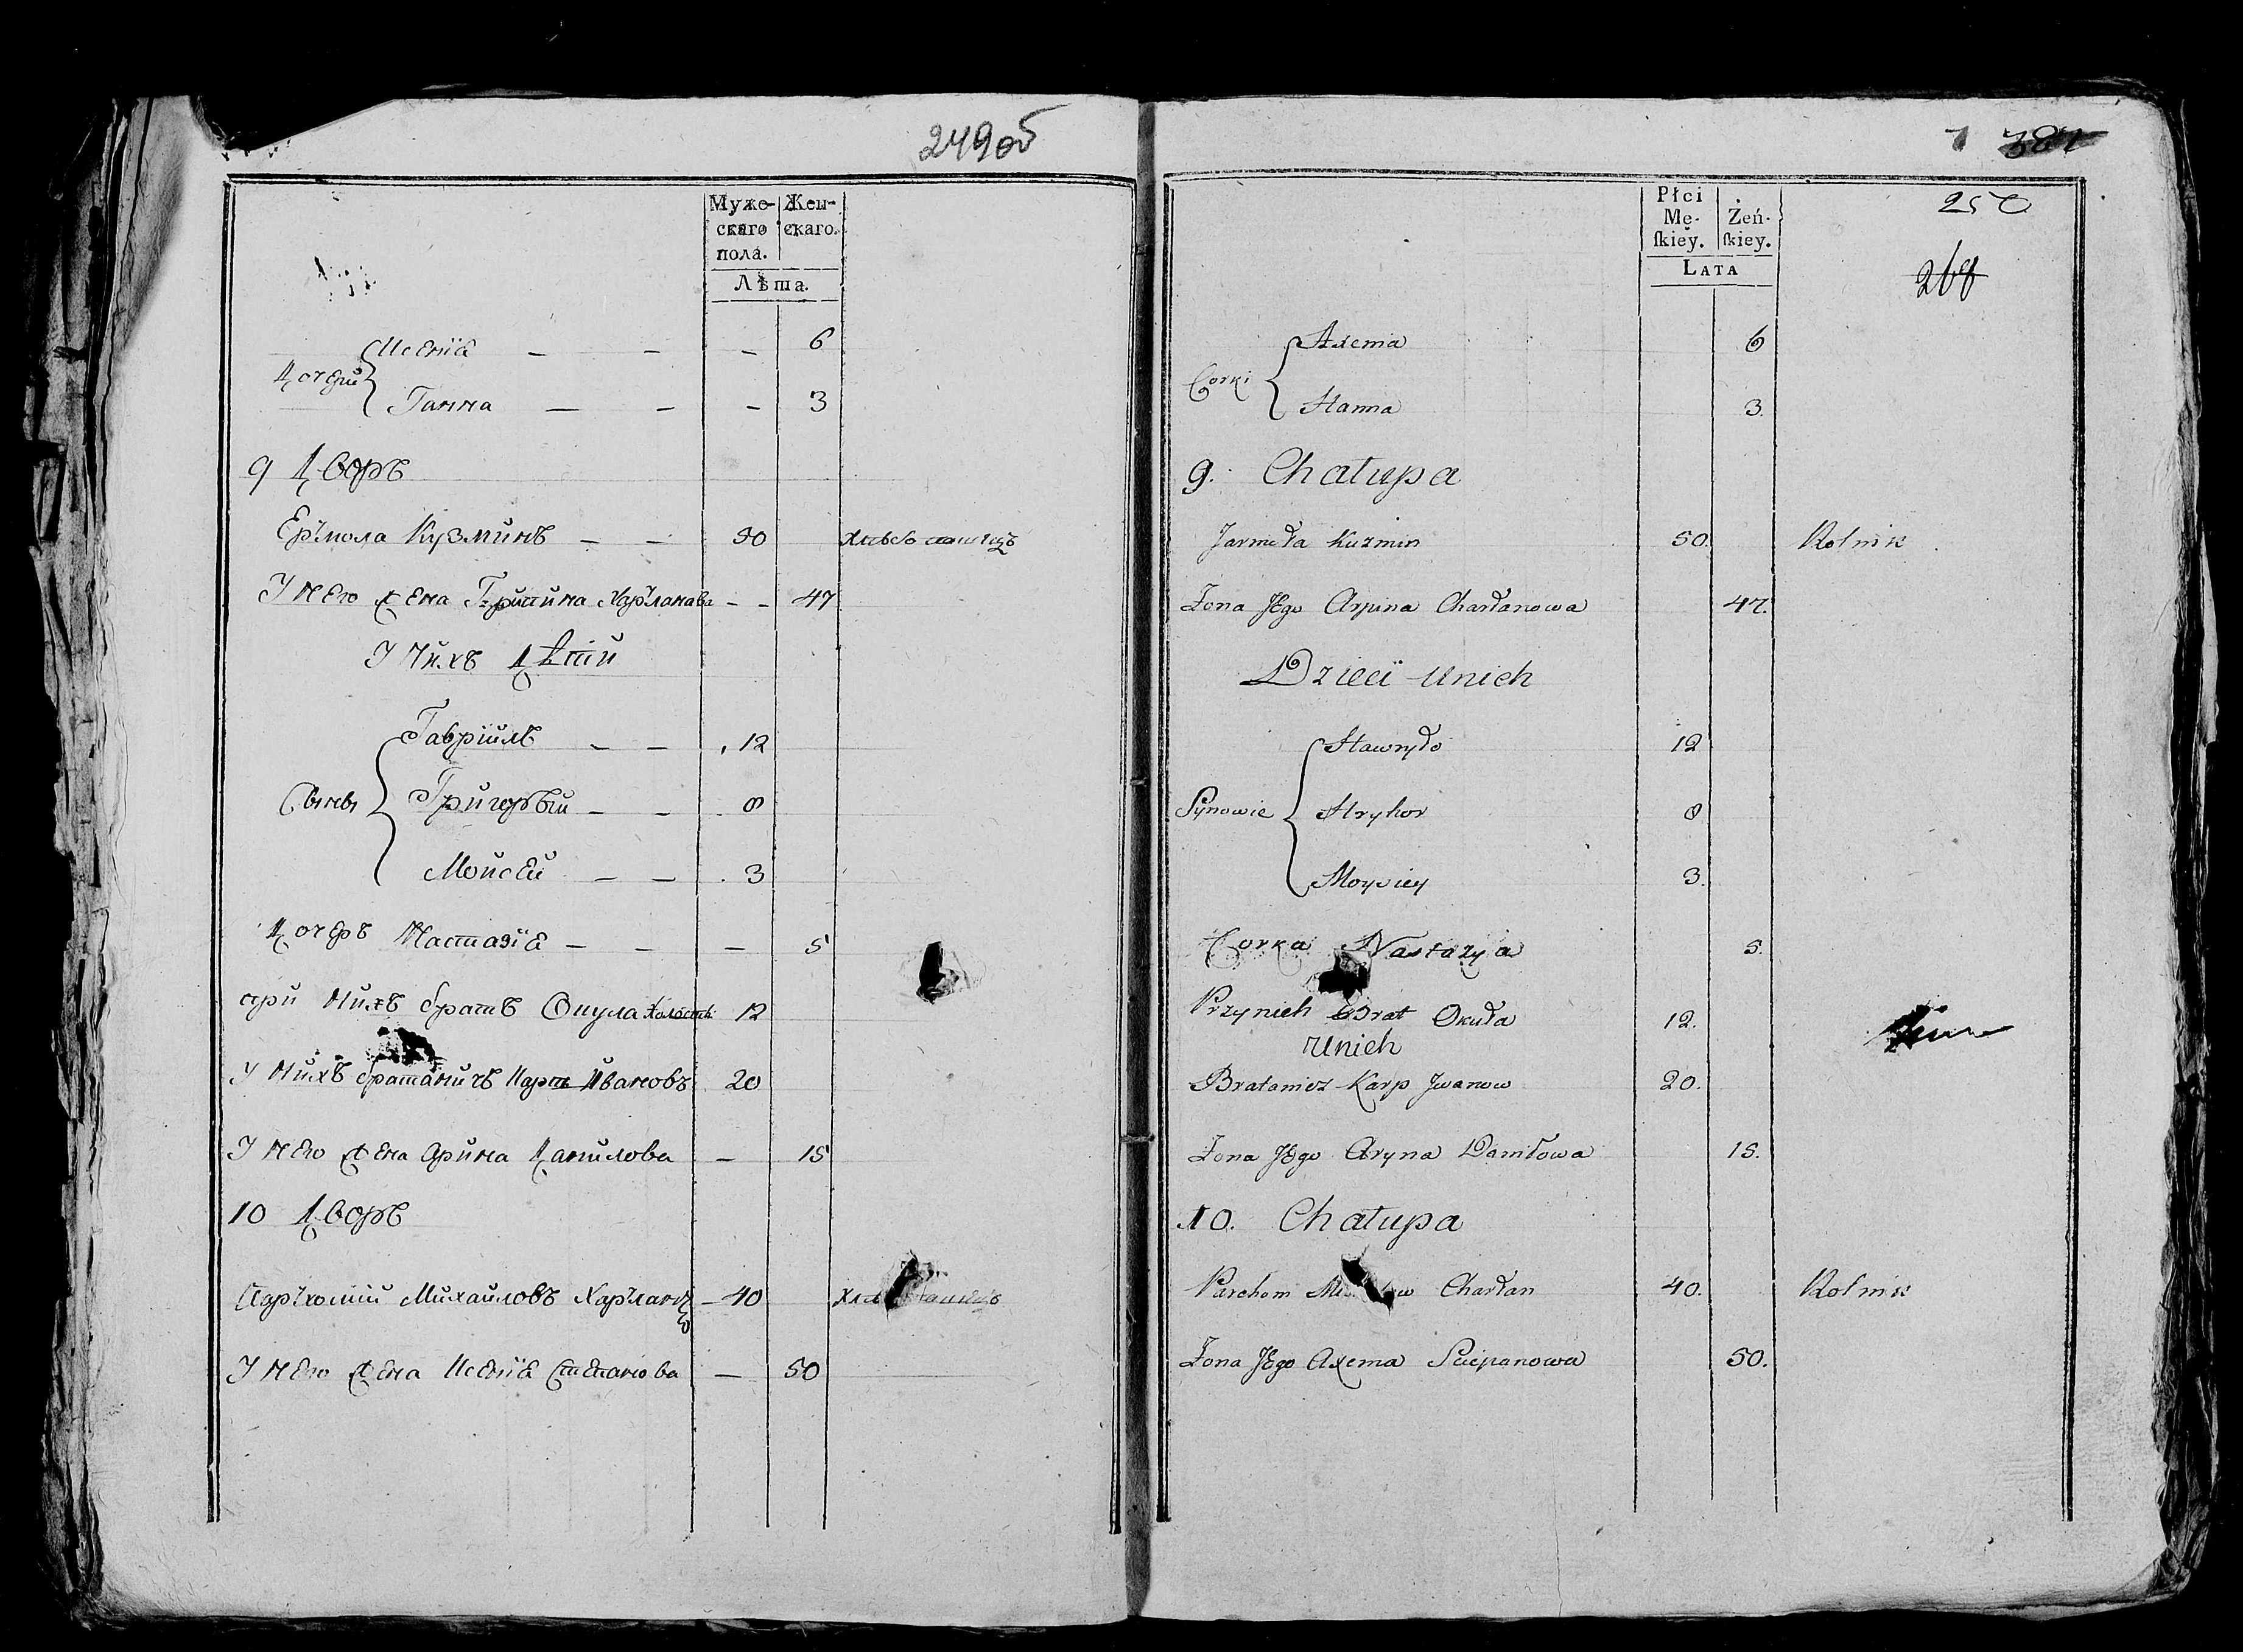 249об
Муже- Жен-
скаго скаго.
пола.
Лѣта.
Ксеніа — — — 6
Дочери
Ганна — — — 3
9 Дворъ
Ермола Кузминъ — — 50 хлѣбопашецъ
У него жена Грипина Харланава — — 47
У нихъ дѣти
Гавріилъ — — 12
Сыны Григорьи — — 8
Мойсеи — — 3
Дочеръ Настазіа — — — 5
при нихъ братъ Окула холостъ 12
У нихъ братаничъ Карпъ Ивановъ 20
У него жена Орина Данилова — 15
10 Дворъ
Пархомии Михаиловъ Харланъ — 40
У него жена Ксеніа Степанова — 50
7 381
250
268
Płci
Mę- Żeń-
skiey. skiey.
LATA
Axenia 6
Corki
Hanna 3.
9. Chałupa
Jarmoła Kuzmin 50. Rolnik
Żona Jego Arpina Charłanowa 47.
Dzieci u nich
Hawryło 12
Synowie Hryhor 8
Moysiey 3.
Corka Nastazya 5.
Przy nich Brat Okuła 12.
U nich
Bratanicz Karp Jwanow 20.
Żona Jego Aryna Daniłowa 15.
10. Chałupa
Parchom Charłan 40. Rolnik
Żona Jego Axenia Sciepanowa 50.